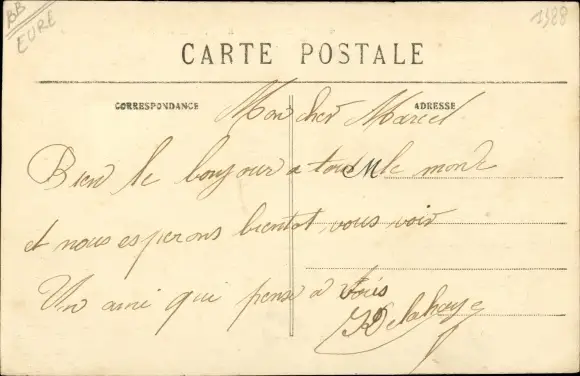 BB
EURE
1388
CARTE POSTALE
CORRESPONDANCE
ADRESSE
Mon cher Marcel
Bien le bonjour a tout M le monde
et nous esperons bientot vous voir
Un ami qui pense a vous
Delahaye